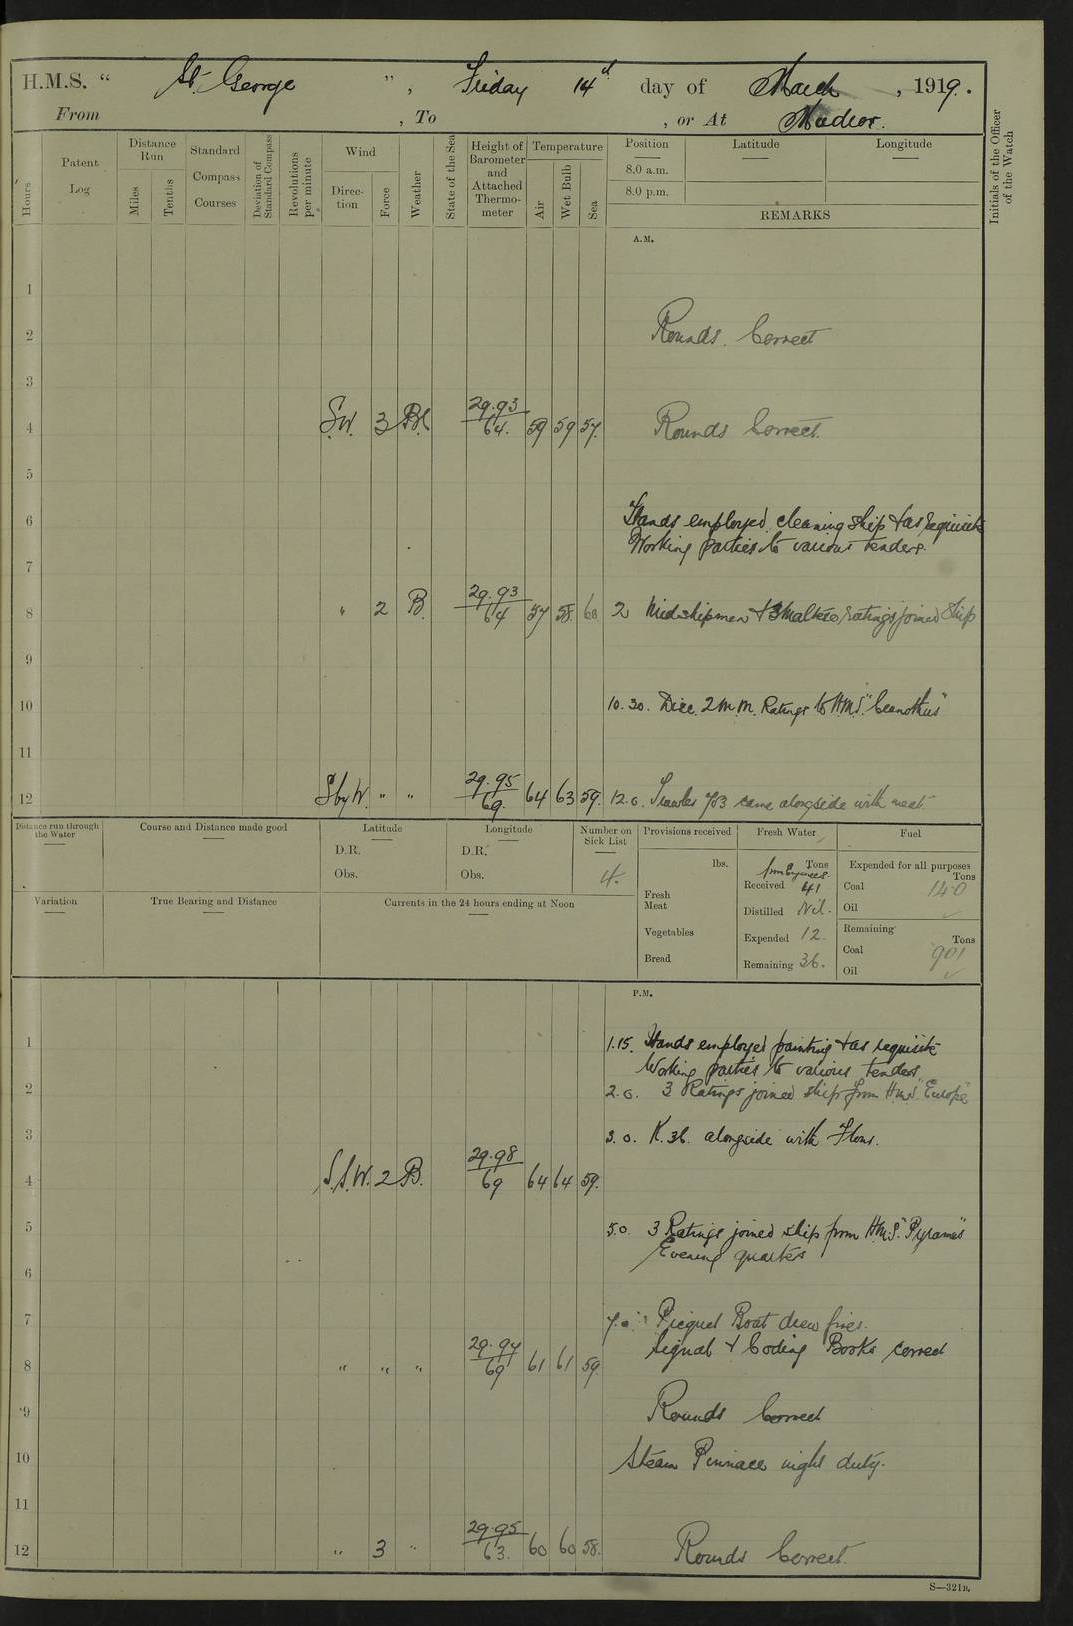 H.M.S. " St. George ", Friday 14th day of March, 1919.
From , To , or At Mudros.
Hours
Patent Log
Distance Run
Miles
Tenths
Standard Compass Courses
Deviation of Standard Compass
Revolutions per minute
Wind
Direction
Force
Weather
State of the Sea
Height of Barometer and Attached Thermometer
Temperature
Air
Wet Bulb
Sea
Position
Latitude
Longitude
8.0 a.m.
8.0 p.m.
REMARKS
Initials of the Officer of the Watch
A.M.
1
2 Rounds Correct
3
4 S.W. 3 BC 29.93/64. 59 59 57. Rounds Correct.
5
6 Hands employed cleaning ship & as requisite
Working parties to various tenders.
7
8 " 2 B. 29.93/64 57 58. 60 2 Midshipmen & 3 Maltese ratings joined Ship
9
10 10.30. Disc. 2 M.M. Ratings to H.M.S. "Ceanothus"
11
12 S by W. " " 29.95/69. 64 63 59. 12.0. Trawler 703 came alongside with meat
Distance run through the Water
Course and Distance made good
Latitude
D.R.
Obs.
Longitude
D.R.
Obs.
Number on Sick List
4.
Provisions received
lbs.
Fresh Meat
Vegetables
Bread
Fresh Water
Tons
Received 41
Distilled Nil.
Expended 12.
Remaining 36.
Fuel
Expended for all purposes
Tons
Coal 140
Oil
Remaining
Tons
Coal 901
Oil
Variation
True Bearing and Distance
Currents in the 24 hours ending at Noon
P.M.
1 1.15. Hands employed painting & as requisite
Working parties to various tenders
2 2.0. 3 Ratings joined ship from H.M.S. "Europa"
3 3.0. K.36. alongside with Flour.
4 S.S.W. 2 B. 29.98/69 64 64 59.
5 5.0. 3 Ratings joined ship from H.M.S. "Pyramus"
Evening quarters
6
7 7.0 Picquet Boat drew fires.
Signal & Coding Books correct
8 " " " 29.97/69 61 61 59
9 Rounds Correct
10 Steam Pinnace night duty.
11
12 " 3 " 29.95/63. 60 60 58. Rounds Correct.
S—321B.